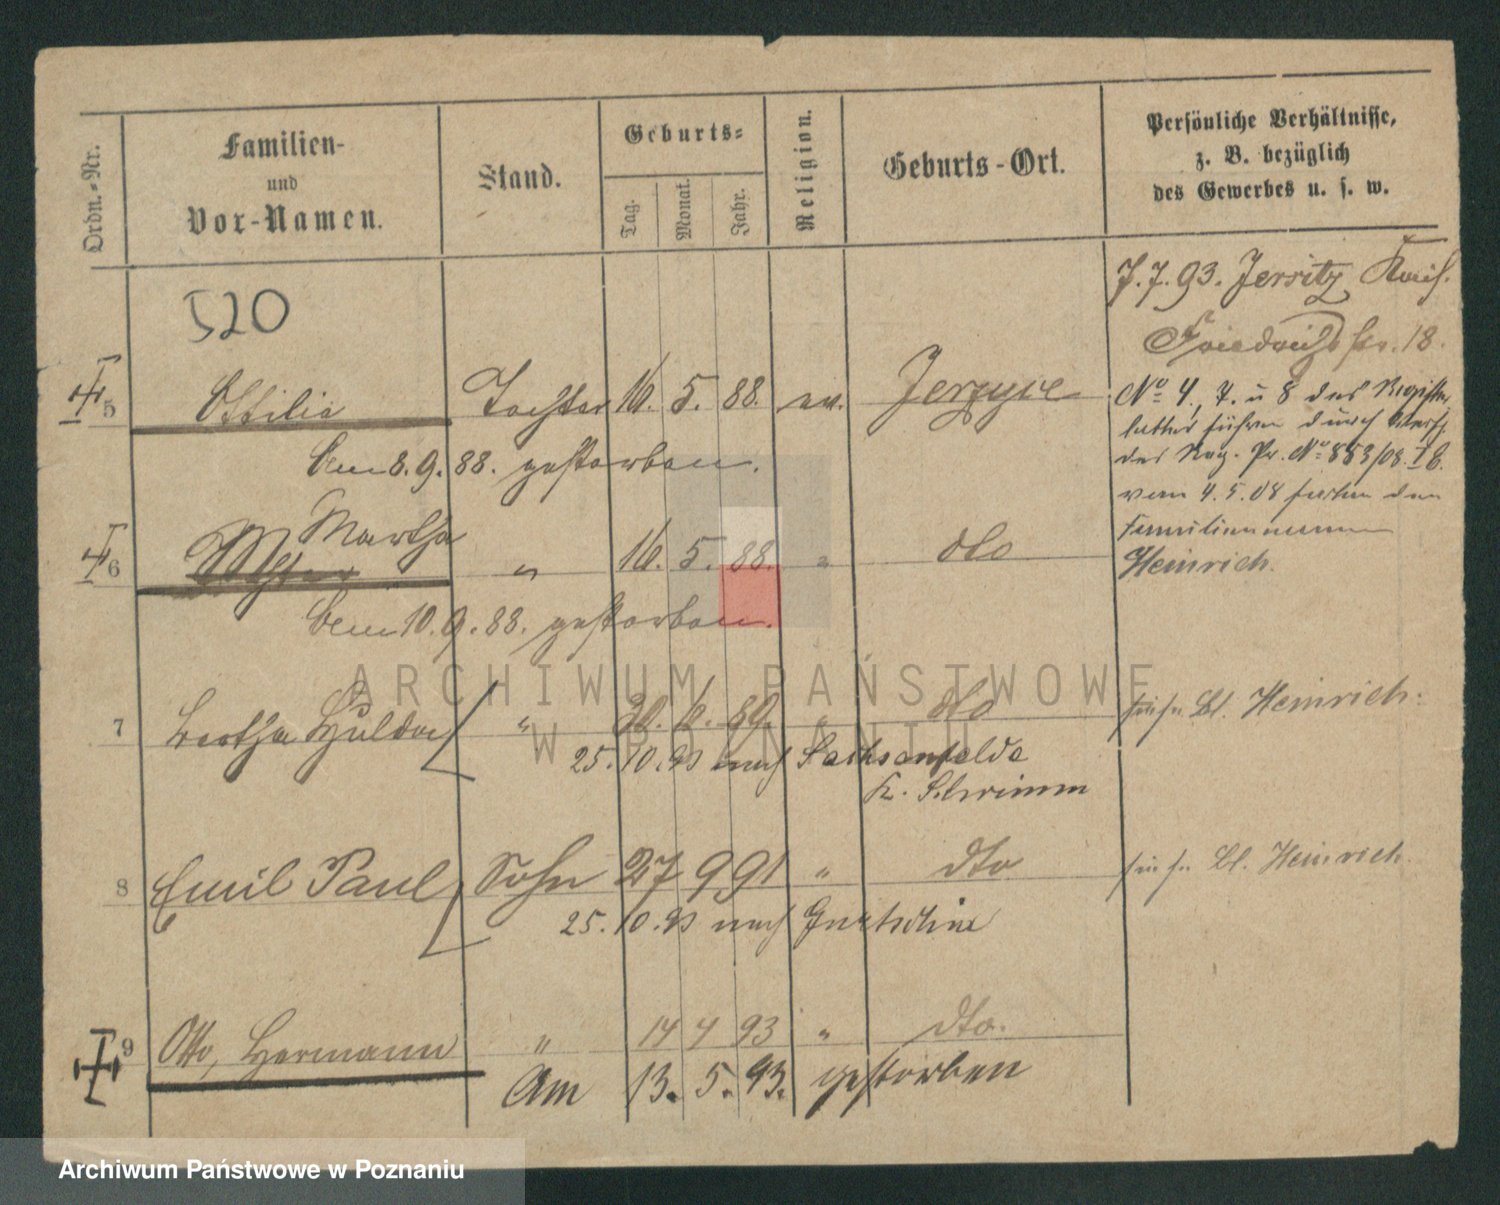 Ordn.-Nr.
Familien-
und
Vor-Namen.
Stand.
Geburts-
Tag. Monat. Jahr.
Religion.
Geburts-Ort.
Persönliche Verhältnisse,
z. B. bezüglich
des Gewerbes u. s. w.
520
7.7.93. Jersitz
Friedrichstr. 18.
5 Ottilie Tochter 16. 5. 88. ev. Jerzyce
No 4, 7. u 8 des Register
blattes führen durch
des Reg. Pr. No 853/08. I B.
vom 4. 5. 08 den
Familiennamen
Heinrich.
den 8. 9. 88. gestorben.
Martha
6 " 16. 5. 88. " dto
den 10. 9. 88. gestorben.
7 Bertha Hulda " 30. 6. 89. " dto Bl. Heinrich.
25. 10. 93 nach Sachsenfelde
K. Schrimm
8 Emil Paul Sohn 27 9 91 " dto Bl. Heinrich.
25. 10. 93 nach Gurtschin
9 Otto, Hermann " 14 4 93 " dto.
Am 13. 5. 93. gestorben
ARCHIWUM PAŃSTWOWE
W POZNANIU
Archiwum Państwowe w Poznaniu